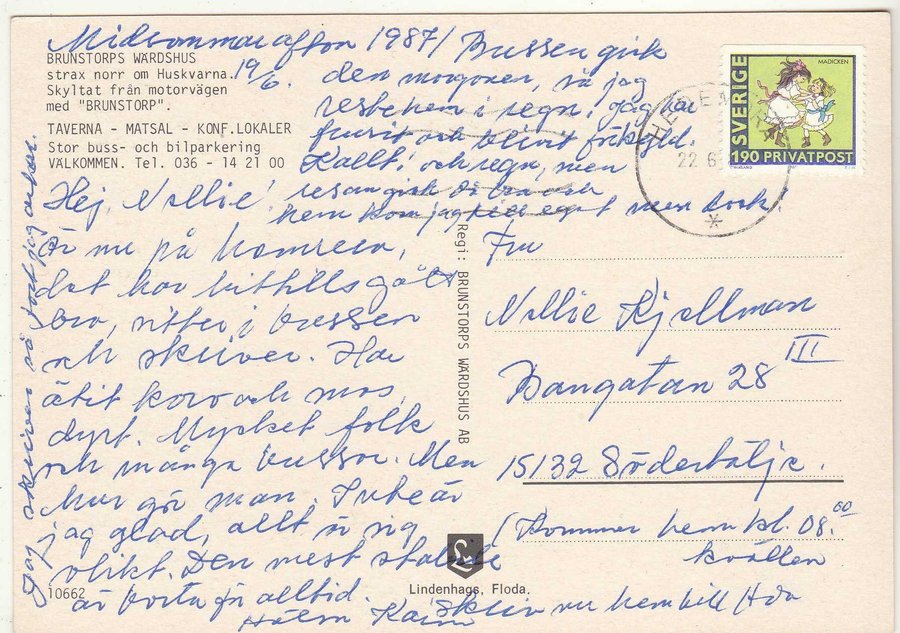 Midsommarafton 1987/ Bussen gick
19/6. den morgonen, så jag
BRUNSTORPS WÄRDSHUS
strax norr om Huskvarna.
Skyltat från motorvägen
med "BRUNSTORP".
TAVERNA - MATSAL - KONF.LOKALER
Stor buss- och bilparkering
VÄLKOMMEN. Tel. 036 - 14 21 00
i regn. jag har
frusit och blivit förkyld.
Kallt! och regn, men
resan gick bra
hem kom jag men dock.
Hej, Nellie!
Är nu på hemresa,
det har hittills gått
bra, sitter i bussen
och skriver. Har
ätit korv och mos,
dyrt. Mycket folk
och många bussar. Men
hur gör man. Inte är
jag glad, allt är sig
olikt. Den mest
är borta för alltid.
Hälsn Karin
Jag skriver så fort jag orkar.
SVERIGE
MADICKEN
190 PRIVATPOST
22 6
Regi: BRUNSTORPS WÄRDSHUS AB
Fru
Nellie Kjellman
Bangatan 28 III
15132 Södertälje.
(Kommer hem kl. 08.00
kvällen
skriv nu hem till
Lindenhags, Floda.
10662